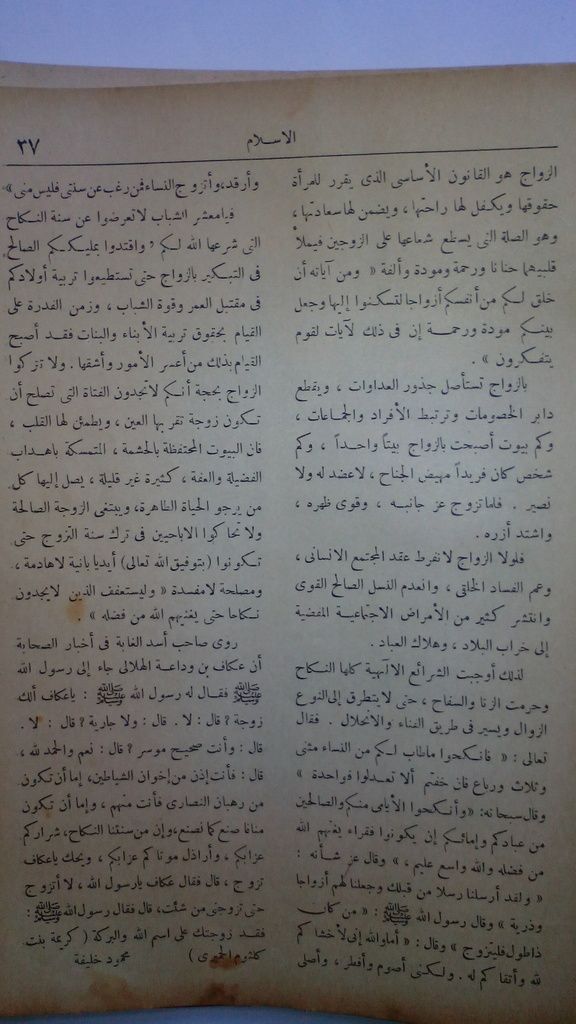 الاسلام
٣٧
الزواج هو القانون الأساسى الذى يقرر للمرأة
حقوقها ويكفل لها راحتها ، ويضمن لها سعادتها ،
وهو الصلة التى يسطع شعاعها على الزوجين فيملأ
قلبيهما حنانا ورحمة ومودة وألفة « ومن آياته أن
خلق لكم من أنفسكم أزواجا لتسكنوا إليها وجعل
بينكم مودة ورحمة إن فى ذلك لآيات لقوم
يتفكرون » .
بالزواج تستأصل جذور العداوات ، ويقطع
دابر الخصومات وترتبط الأفراد والجماعات ،
وكم بيوت أصبحت بالزواج بيتاً واحداً ، وكم
شخص كان فريداً مهيض الجناح ، لاعضد له ولا
نصير . فلما تزوج عز جانبه ، وقوى ظهره ،
واشتد أزره .
فلولا الزواج لانفرط عقد المجتمع الانسانى ،
وعم الفساد الخلقى ، وانعدم النسل الصالح القوى
وانتشر كثير من الأمراض الاجتماعية المفضية
إلى خراب البلاد ، وهلاك العباد .
لذلك أوجبت الشرائع الالهية كلها النكاح
وحرمت الزنا والسفاح ، حتى لا يتطرق إلى النوع
الزوال ويسير فى طريق الفناء والانحلال . فقال
تعالى : « فانكحوا ماطاب لكم من النساء مثنى
وثلاث ورباع فان خفتم ألا تعدلوا فواحدة »
وقال سبحانه: «وأنكحوا الأيامى منكم والصالحين
من عبادكم وإمائكم إن يكونوا فقراء يغنهم الله
من فضله والله واسع عليم ، » وقال عز شأنه :
« ولقد أرسلنا رسلا من قبلك وجعلنا لهم أزواجا
وذرية » وقال رسول الله ﷺ : « من كان
ذا طول فليتزوج » وقال : « أما والله إنى لأخشاكم
لله وأتقاكم له . ولكنى أصوم وأفطر ، وأصلى
وأرقد، وأتزوج النساء فمن رغب عن سنتى فليس منى»
فيامعشر الشباب لا تعرضوا عن سنة النكاح
التى شرعها الله لكم ، واقتدوا بمليككم الصالح
فى التبكير بالزواج حتى تستطيعوا تربية أولادكم
فى مقتبل العمر وقوة الشباب ، وزمن القدرة على
القيام بحقوق تربية الأبناء والبنات فقد أصبح
القيام بذلك من أعسر الأمور وأشقها . ولا تتركوا
الزواج بحجة أنكم لا تجدون الفتاة التى تصلح أن
تكون زوجة تقر بها العين ، ويطمئن لها القلب ،
فان البيوت المحتفظة بالحشمة ، المتمسكة باهداب
الفضيلة والعفة ، كثيرة غير قليلة ، يصل إليها كل
من يرجو الحياة الطاهرة، ويبتغى الزوجة الصالحة
ولا تحاكوا الاباحيين فى ترك سنة التزوج حتى
تكونوا (بتوفيق الله تعالى) أيديا بانية لاهادمة ،
ومصلحة لامفسدة « وليستعفف الذين لايجدون
نكاحا حتى يغنيهم الله من فضله » .
روى صاحب أسد الغابة فى أخبار الصحابة
أن عكاف بن وداعة الهلالى جاء إلى رسول الله
ﷺ فقال له رسول الله ﷺ : ياعكاف ألك
زوجة ? قال : لا . قال : ولا جارية ? قال : لا .
قال : وأنت صحيح موسر ? قال : نعم والحمد لله ،
قال : فأنت إذن من إخوان الشياطين، إما أن تكون
من رهبان النصارى فأنت منهم ، وإما أن تكون
منا فاصنع كما نصنع، وإن من سنتنا النكاح، شراركم
عزابكم ، وأراذل موتاكم عزابكم ، ويحك ياعكاف
تزوج ، قال فقال عكاف يارسول الله ، لا أتزوج
حتى تزوجنى من شئت، قال فقال رسول الله ﷺ :
فقد زوجتك على اسم الله والبركة ( كريمة بنت
كلثوم الحميرى )
محمود خليفة